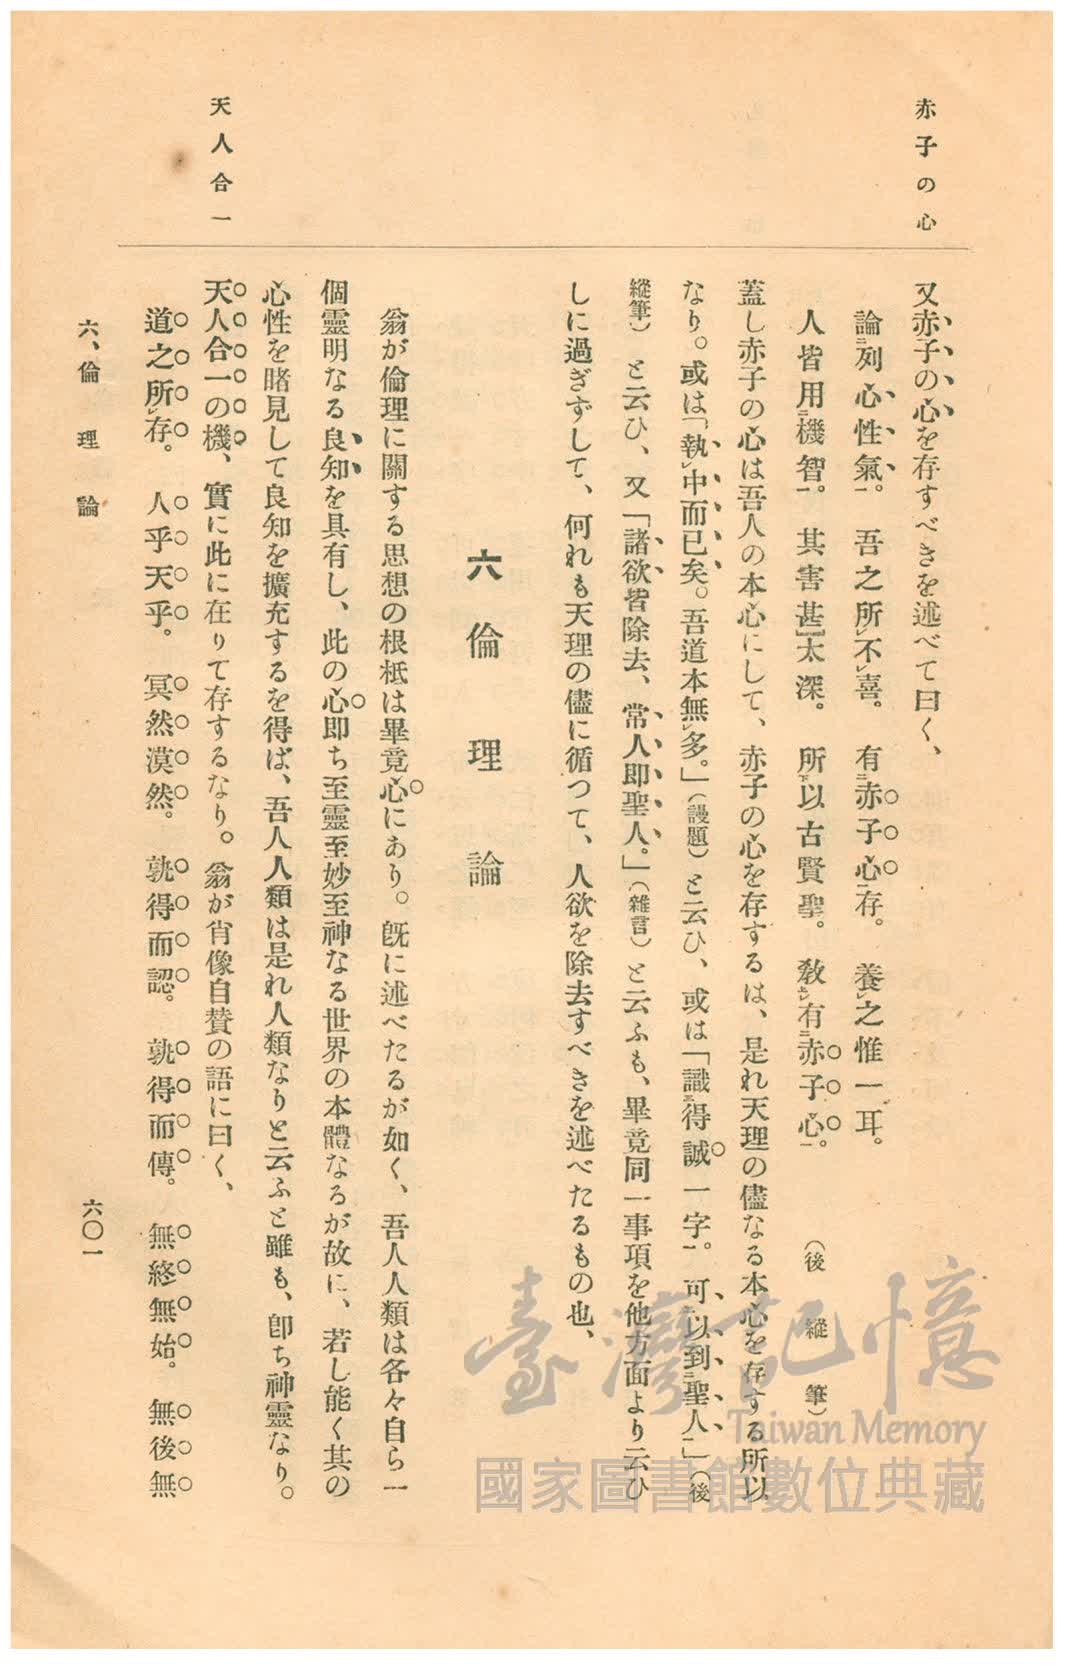 赤子の心
天人合一
又赤子の心を存すべきを述べて曰く、
論列心性氣。吾之所不喜。有赤子心存。養之惟一耳。
人皆用機智。其害甚太深。所以古賢聖。敎有赤子心。（後縱筆）
蓋し赤子の心は吾人の本心にして、赤子の心を存するは、是れ天理の儘なる本心を存する所以
なり。或は「執中而已矣。吾道本無多。」（謾題）と云ひ、或は「識得誠一字。可以到聖人」（後
縱筆）と云ひ、又「諸欲皆除去、常人即聖人。」（雜言）と云ふも、畢竟同一事項を他方面より云ひ
しに過ぎずして、何れも天理の儘に循つて、人欲を除去すべきを述べたるもの也、
六　倫理論
翁が倫理に關する思想の根柢は畢竟心にあり。旣に述べたるが如く、吾人人類は各々自ら一
個靈明なる良知を具有し、此の心即ち至靈至妙至神なる世界の本體なるが故に、若し能く其の
心性を睹見して良知を擴充するを得ば、吾人人類は是れ人類なりと云ふと雖も、卽ち神靈なり。
天人合一の機、實に此に在りて存するなり。翁が肖像自賛の語に曰く、
道之所存。人乎天乎。冥然漠然。孰得而認。孰得而傳。無終無始。無後無
六、倫理論
六〇一
臺灣記憶
Taiwan Memory
國家圖書館數位典藏